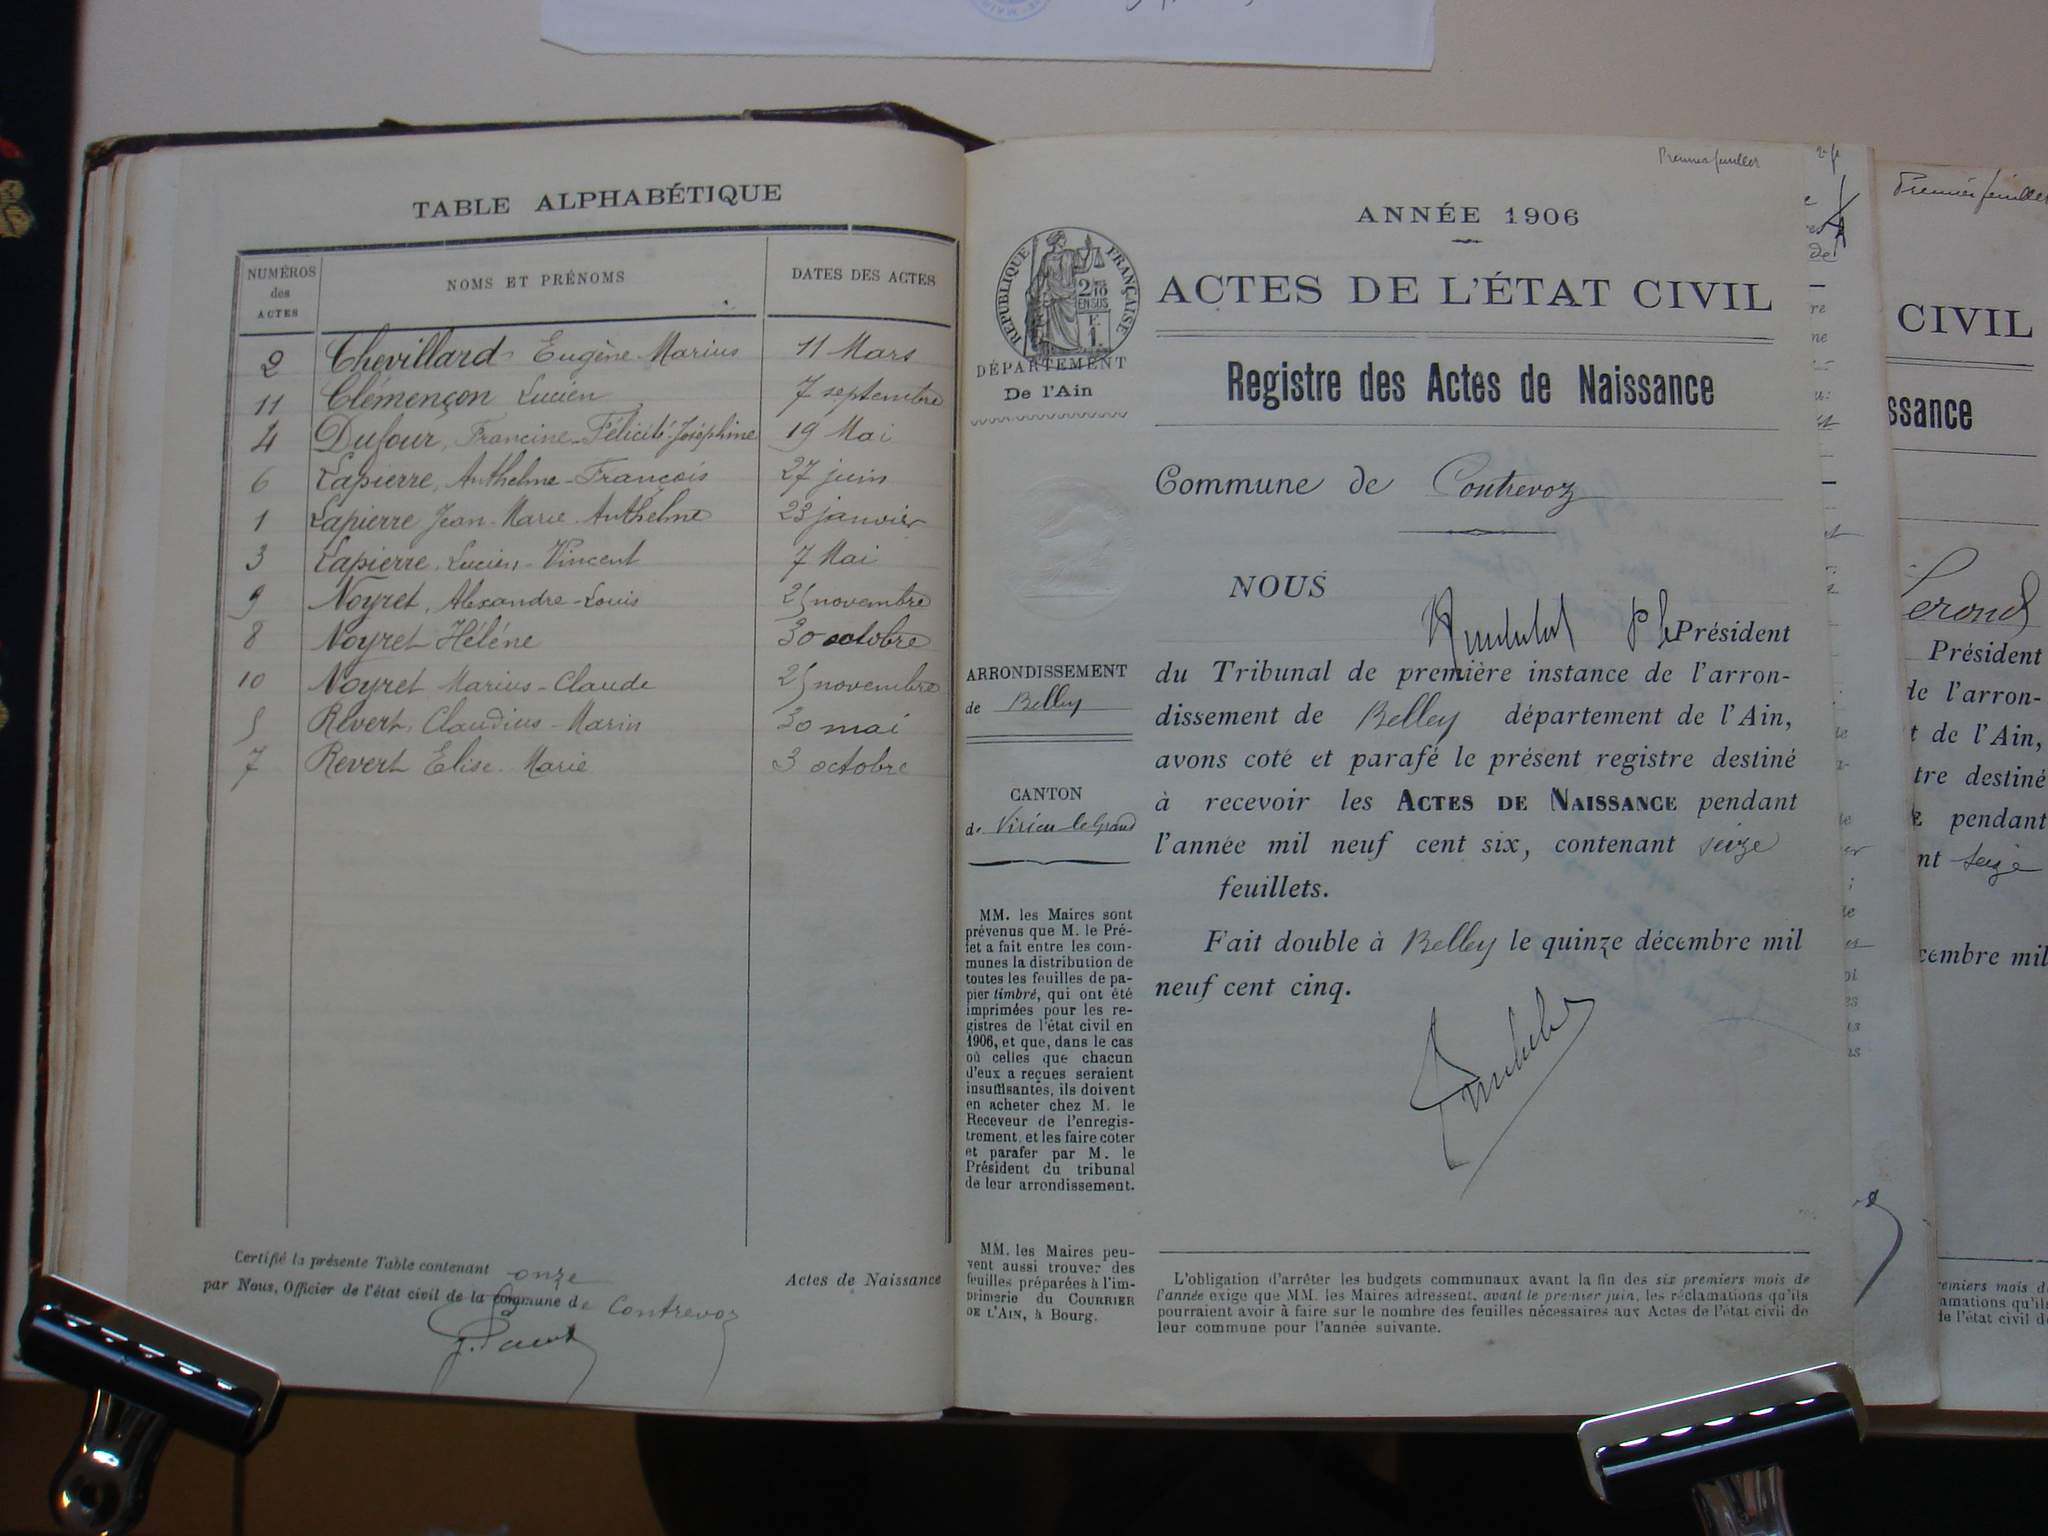 TABLE ALPHABÉTIQUE
NUMÉROS des ACTES NOMS ET PRÉNOMS DATES DES ACTES
2 Chevillard Eugène Marius 11 Mars
11 Clémençon Lucien 7 septembre
4 Dufour, Francine-Félicité-Joséphine 19 Mai
6 Lapierre, Anthelme-François 27 juin
1 Lapierre Jean-Marie-Anthelme 23 janvier
3 Lapierre, Lucien-Vincent 7 Mai
9 Noyret, Alexandre-Louis 25 novembre
8 Noyret Hélène 30 octobre
10 Noyret Marius-Claude 25 novembre
5 Revert, Claudius-Marin 30 mai
7 Revert Elise Marie 3 octobre
Certifié la présente Table contenant onze Actes de Naissance
par Nous, Officier de l'état civil de la commune de Contrevoz
Premier feuillet
ANNÉE 1906
RÉPUBLIQUE FRANÇAISE
2/10
EN SUS
F.
1.
ACTES DE L'ÉTAT CIVIL
DÉPARTEMENT
De l'Ain
Registre des Actes de Naissance
Commune de Contrevoz
NOUS
Président
du Tribunal de première instance de l'arron-
dissement de Belley département de l'Ain,
avons coté et parafé le présent registre destiné
à recevoir les ACTES DE NAISSANCE pendant
l'année mil neuf cent six, contenant seize
feuillets.
Fait double à Belley le quinze décembre mil
neuf cent cinq.
ARRONDISSEMENT
de Belley
CANTON
de Virieu-le-Grand
MM. les Maires sont
prévenus que M. le Pré-
fet a fait entre les com-
munes la distribution de
toutes les feuilles de pa-
pier timbré, qui ont été
imprimées pour les re-
gistres de l'état civil en
1906, et que, dans le cas
où celles que chacun
d'eux a reçues seraient
insuffisantes, ils doivent
en acheter chez M. le
Receveur de l'enregis-
trement, et les faire coter
et parafer par M. le
Président du tribunal
de leur arrondissement.
MM. les Maires peu-
vent aussi trouver des
feuilles préparées à l'im-
primerie du COURRIER
DE L'AIN, à Bourg.
L'obligation d'arrêter les budgets communaux avant la fin des six premiers mois de
l'année exige que MM. les Maires adressent, avant le premier juin, les réclamations qu'ils
pourraient avoir à faire sur le nombre des feuilles nécessaires aux Actes de l'état civil de
leur commune pour l'année suivante.
Premier feuillet
CIVIL
ssance
Président
de l'arron-
t de l'Ain,
tre destiné
pendant
nt seize
cembre mil
remiers mois d
amations qu'ils
de l'état civil de